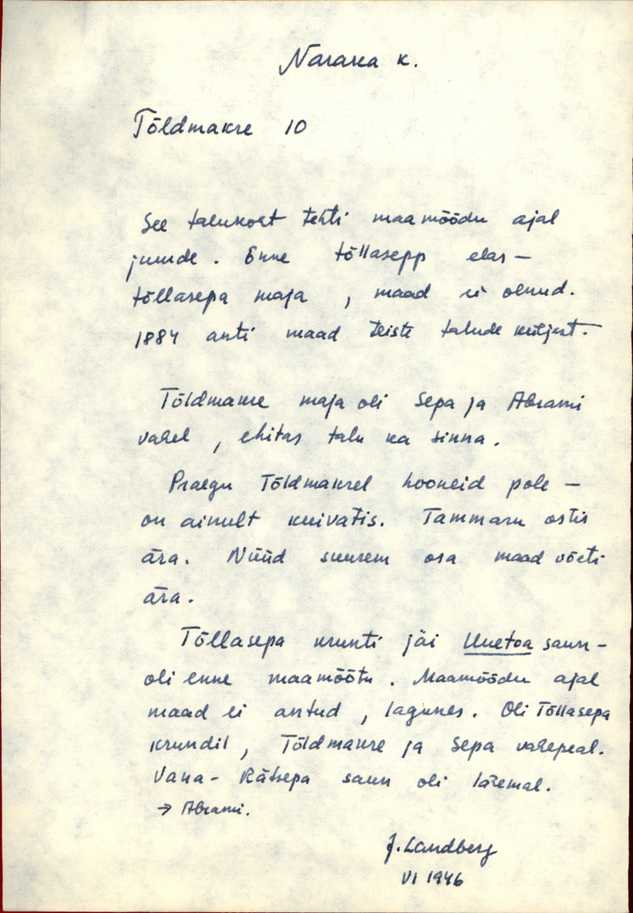 Nararea k.
Tõldmakre 10
See talukoht tehti maamõõdu ajal
juurde. Enne tõllasepp elas –
tõllasepa maja, maad ei olnud.
1884 anti maad teiste talude küljest.
Tõldmakre maja oli Sepa ja Abrami
vahel, ehitas talu ka sinna.
Praegu Tõldmakrel hooneid pole –
on ainult kuivatis. Tammaru ostis
ära. Nüüd suurem osa maad võeti
ära.
Tõllasepa krunti jäi Uuetoa saun –
oli enne maamõõtu. Maamõõdu ajal
maad ei antud, lagunes. Oli Tõllasepa
krundil, Tõldmakre ja Sepa vahepeal.
Vana-Rätsepa saun oli lähemal.
→ Abrami.
J. Landberg
VI 1946